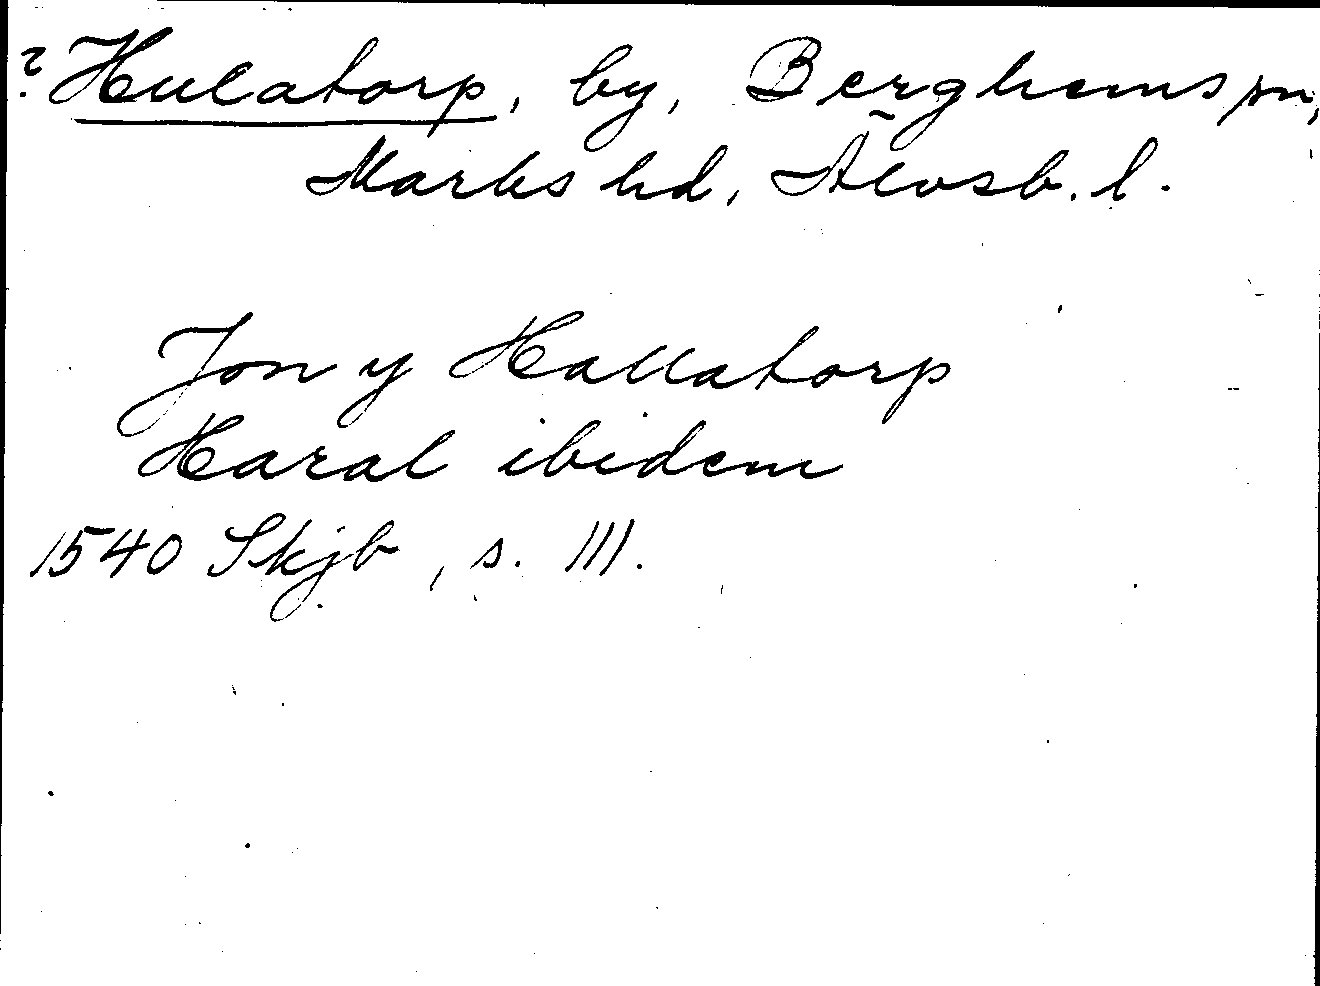 ? Hulatorp, by, Berghems sn,
Marks hd, Älvsb. l.
Jon y Hallatorp
Haral ibidem
1540 Skjb, s. 111.